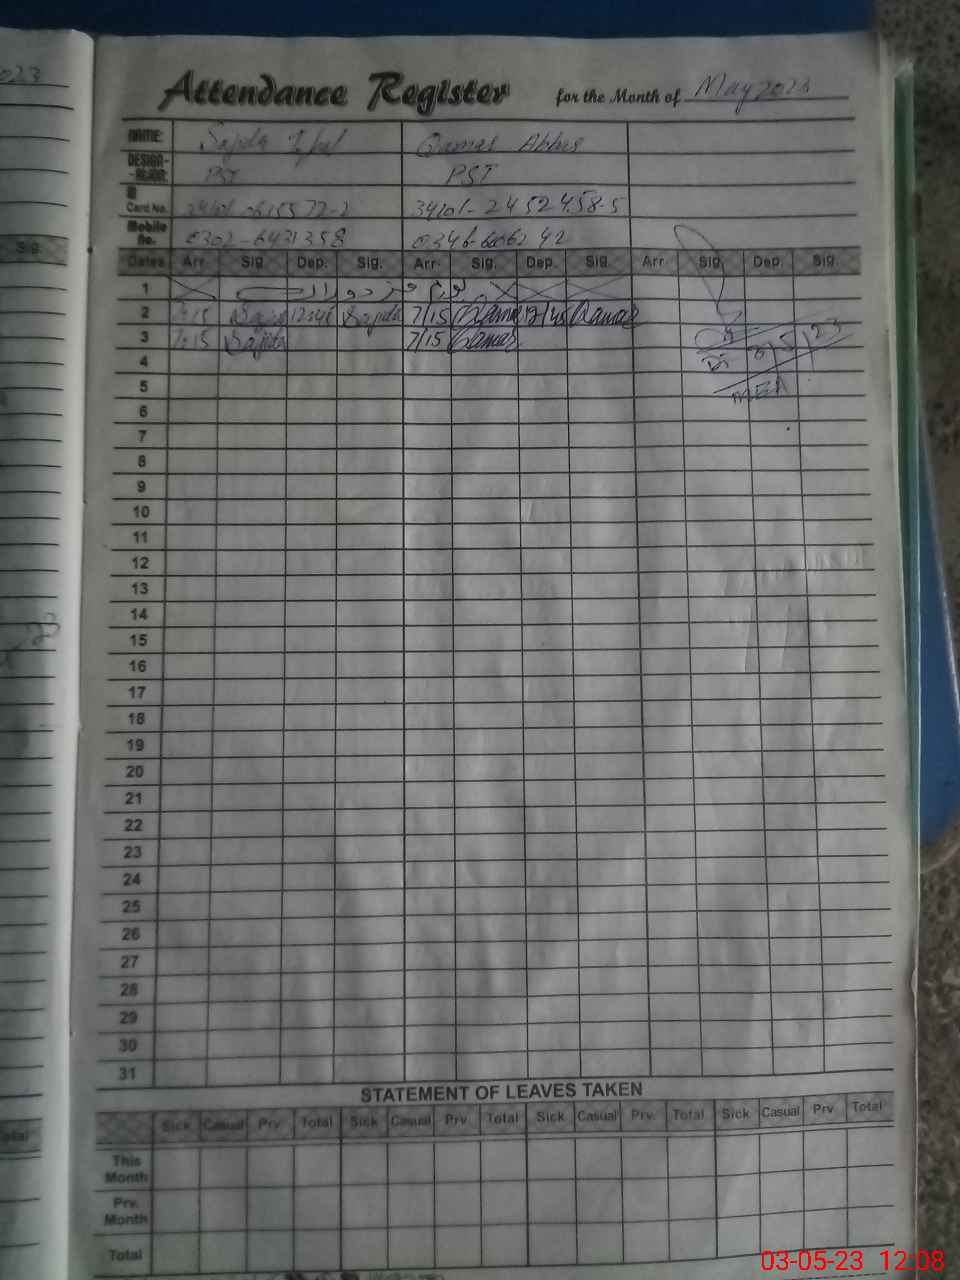 Attendance Register for the Month of May 2023
NAME: Sajida Qamar Abbas
DESIGNATION: PST PST
Card No. 34101-2452458-5
Mobile No. 0302-6431358 0346-606242
Dates Arr. Sig. Dep. Sig. Arr. Sig. Dep. Sig. Arr. Sig. Dep. Sig.
1 یوم مزدوراں
2 7:15 Sajida Sajida 7/15 Qamar 12/45 Qamar
3 7:15 Sajida 7/15 Qamar 3/5/23
4
5 MEA
6
7
8
9
10
11
12
13
14
15
16
17
18
19
20
21
22
23
24
25
26
27
28
29
30
31
STATEMENT OF LEAVES TAKEN
Sick Casual Prv. Total Sick Casual Prv. Total Sick Casual Prv. Total Sick Casual Prv. Total
This Month
Prv. Month
Total
03-05-23 12:08